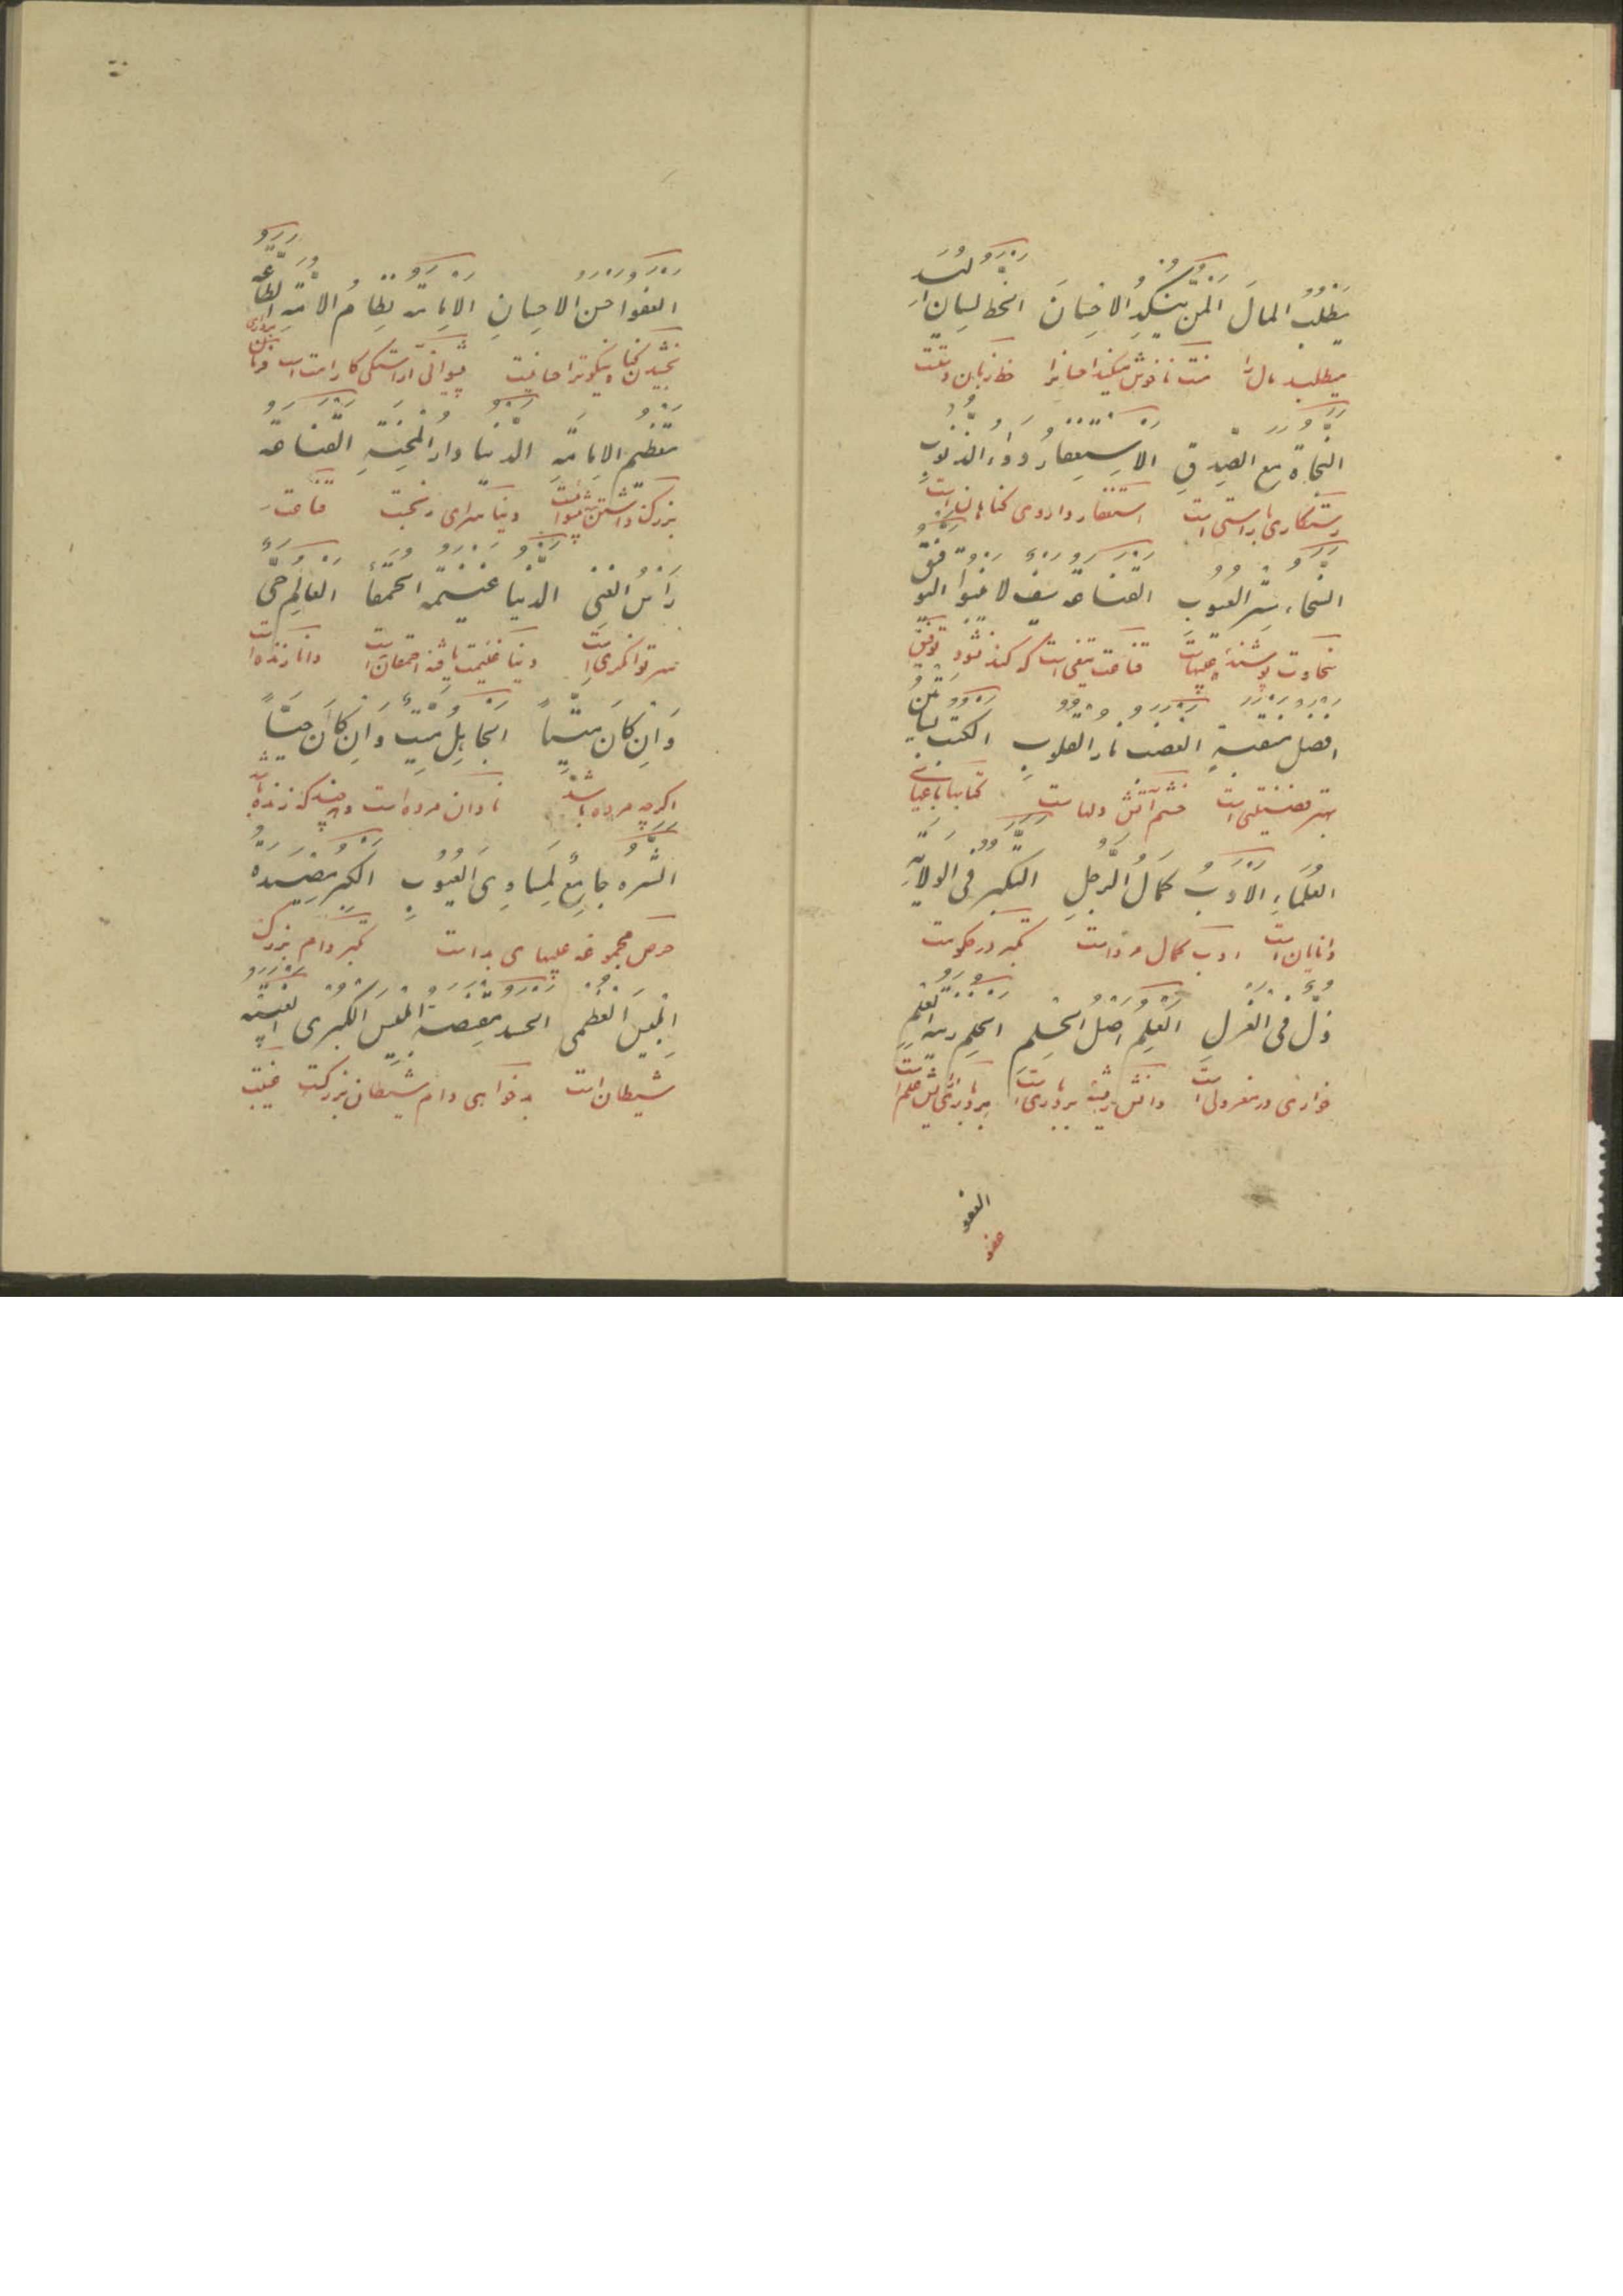 يطلب المالَ المنّ ينكد الاحسانَ الخط لسان اليد
میطلبد مال را منت ناخوش میکند احسانرا خط زبان دستست
النجاة مع الصدقِ الاستغفار دواء الذنوبِ
رستکاری با راستی است استغفار داروی کناهانست
السخاء ستر العيوب القناعة سيف لا ينبوا التوفيق
سخاوت پوشندهٔ عیبهاست قناعت تیغی است که کند نشود توفیق
افضل منقبةٍ الغضب نار القلوبِ الكتب بساتين
بهتر فضیلتی است خشم آتش دلهاست کتابها باغهای
العلماءِ الادبُ كمالُ الرجلِ التكبر فى الولايةِ
دانایان است ادب کمال مرد است تکبر در حکومت
ذلّ فى العزلِ العلم اصل الحلم الحلم زينة العلم
خواری در معزولی است دانش ریشهٔ بردباری است بردباری آرایش علم است
العفو
عفو
العفو احسن الاحسانِ الامامة نظامُ الامّةِ الطاعة
بخشیدن کناه نیکوترین احسانست پیشوائی آراستکی کار امت است فرمان برداری
تعظيم الامامةِ الدنيا دار المحنةِ القناعة
بزرک داشتن پیشوائیست دنیا سرای رنجست قناعت
رأس الغنى الدنيا غنيمة الحمقاء العالم حىّ
سر توانکری است دنیا غنیمت یافتهٔ احمقان است دانا زنده است
وَاِن كانَ ميّتاً الجاهلُ ميّتٌ وَاِن كانَ حيّاً
اکرچه مرده باشد نادان مرده است و هرچند که زنده باشد
الشره جامعٌ لمساوِى العيوبِ الكبر مصيدة
حرص مجموعهٔ عیبهای بد است کبر دام بزرک
ابليس العظمى الحسد مقنصة ابليس الكبرى الغيبة
شیطان است بدخواهی دام شیطان بزرکست غیبت